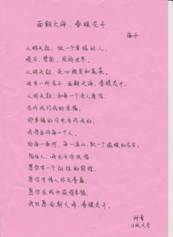 面朝大海，春暖花开
海子
从明天起，做一个幸福的人
喂马、劈柴，周游世界
从明天起，关心粮食和蔬菜
我有一所房子，面朝大海，春暖花开
从明天起，和每一个亲人通信
告诉他们我的幸福
那幸福的闪电告诉我的
我将告诉每一个人
给每一条河，每一座山，取一个温暖的名字
陌生人，我也为你祝福
愿你有一个灿烂的前程
愿你有情人终成眷属
愿你在尘世获得幸福
我只愿面朝大海，春暖花开